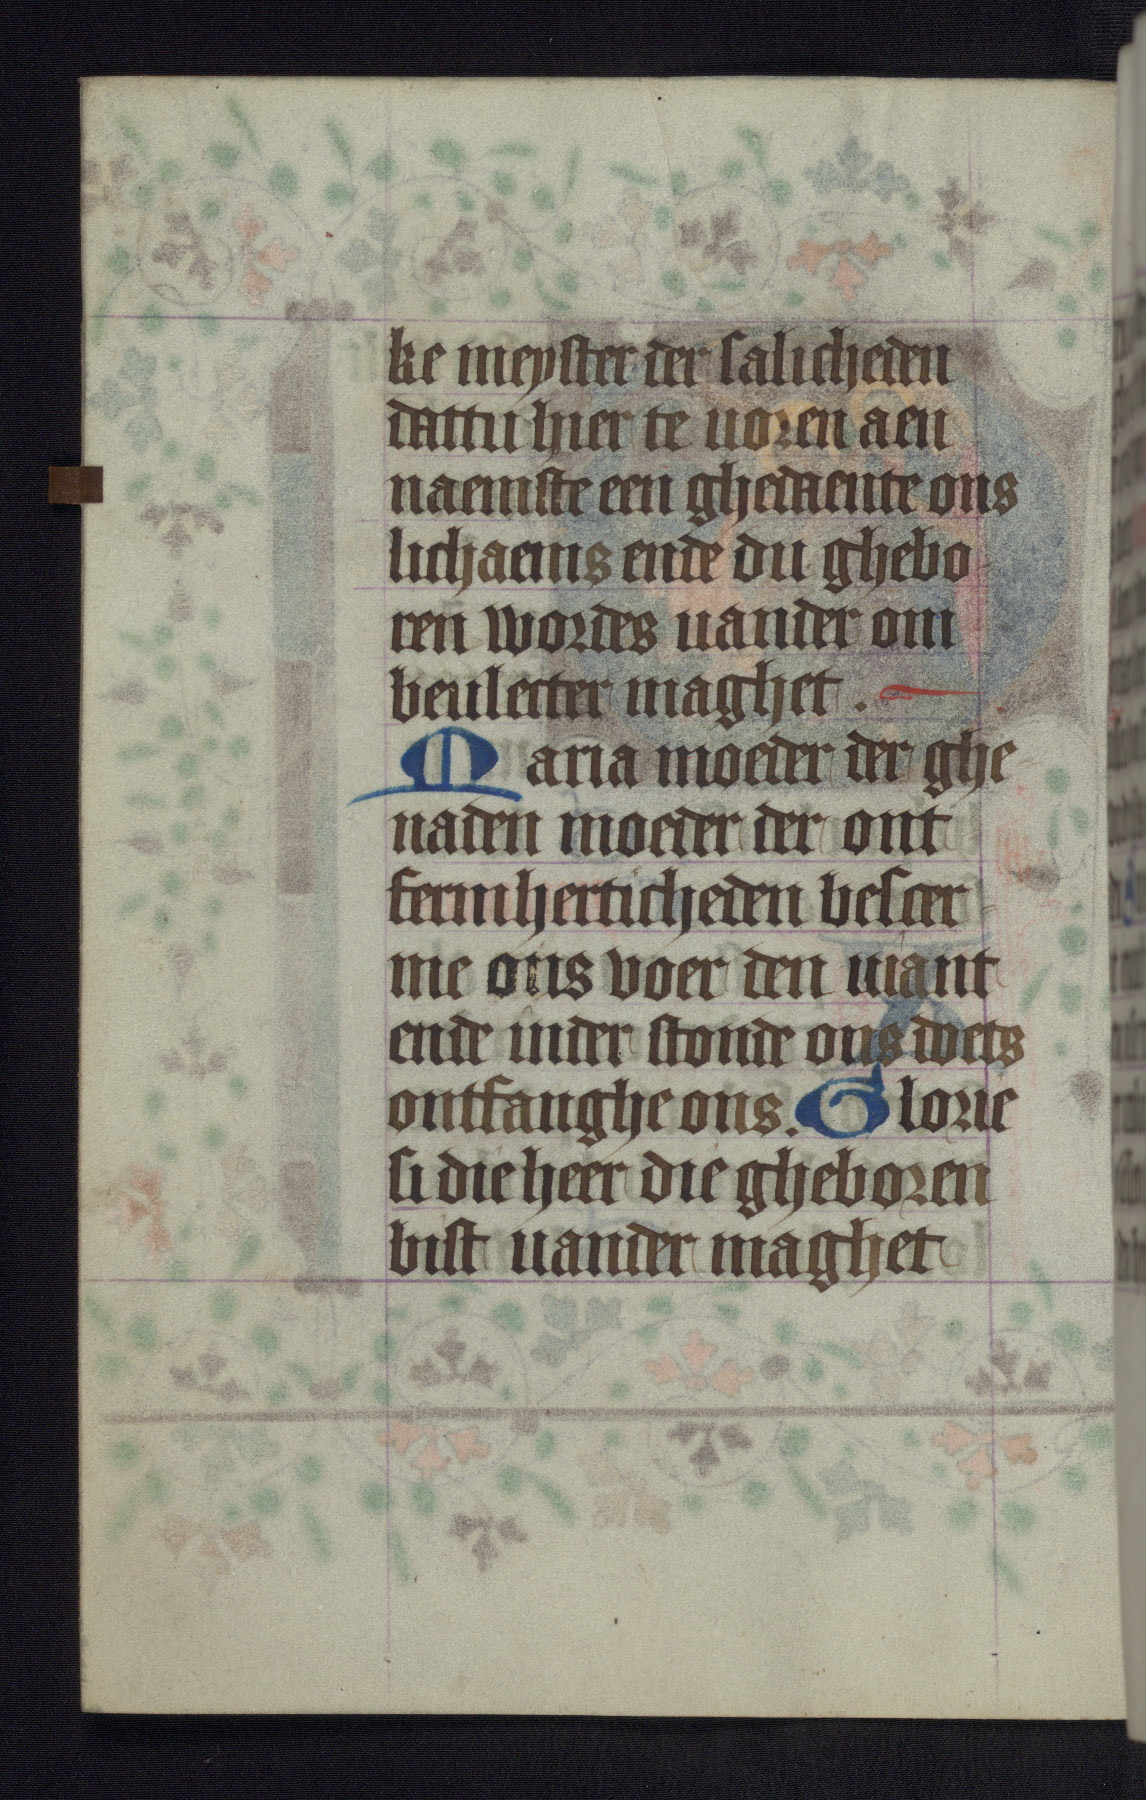 ke meyster der salicheden
dattu hier te uoren aen
naemste een ghedaente ons
lichaems ende du ghebo
ren wordes uander om
beulecter maghet .
Maria moeder der ghe
naden moeder der ont
fermherticheden bescer
me ons voer den uiant
ende inder stonde ons doets
ontfanghe ons. Glorie
si die heer die gheboren
bist uander maghet